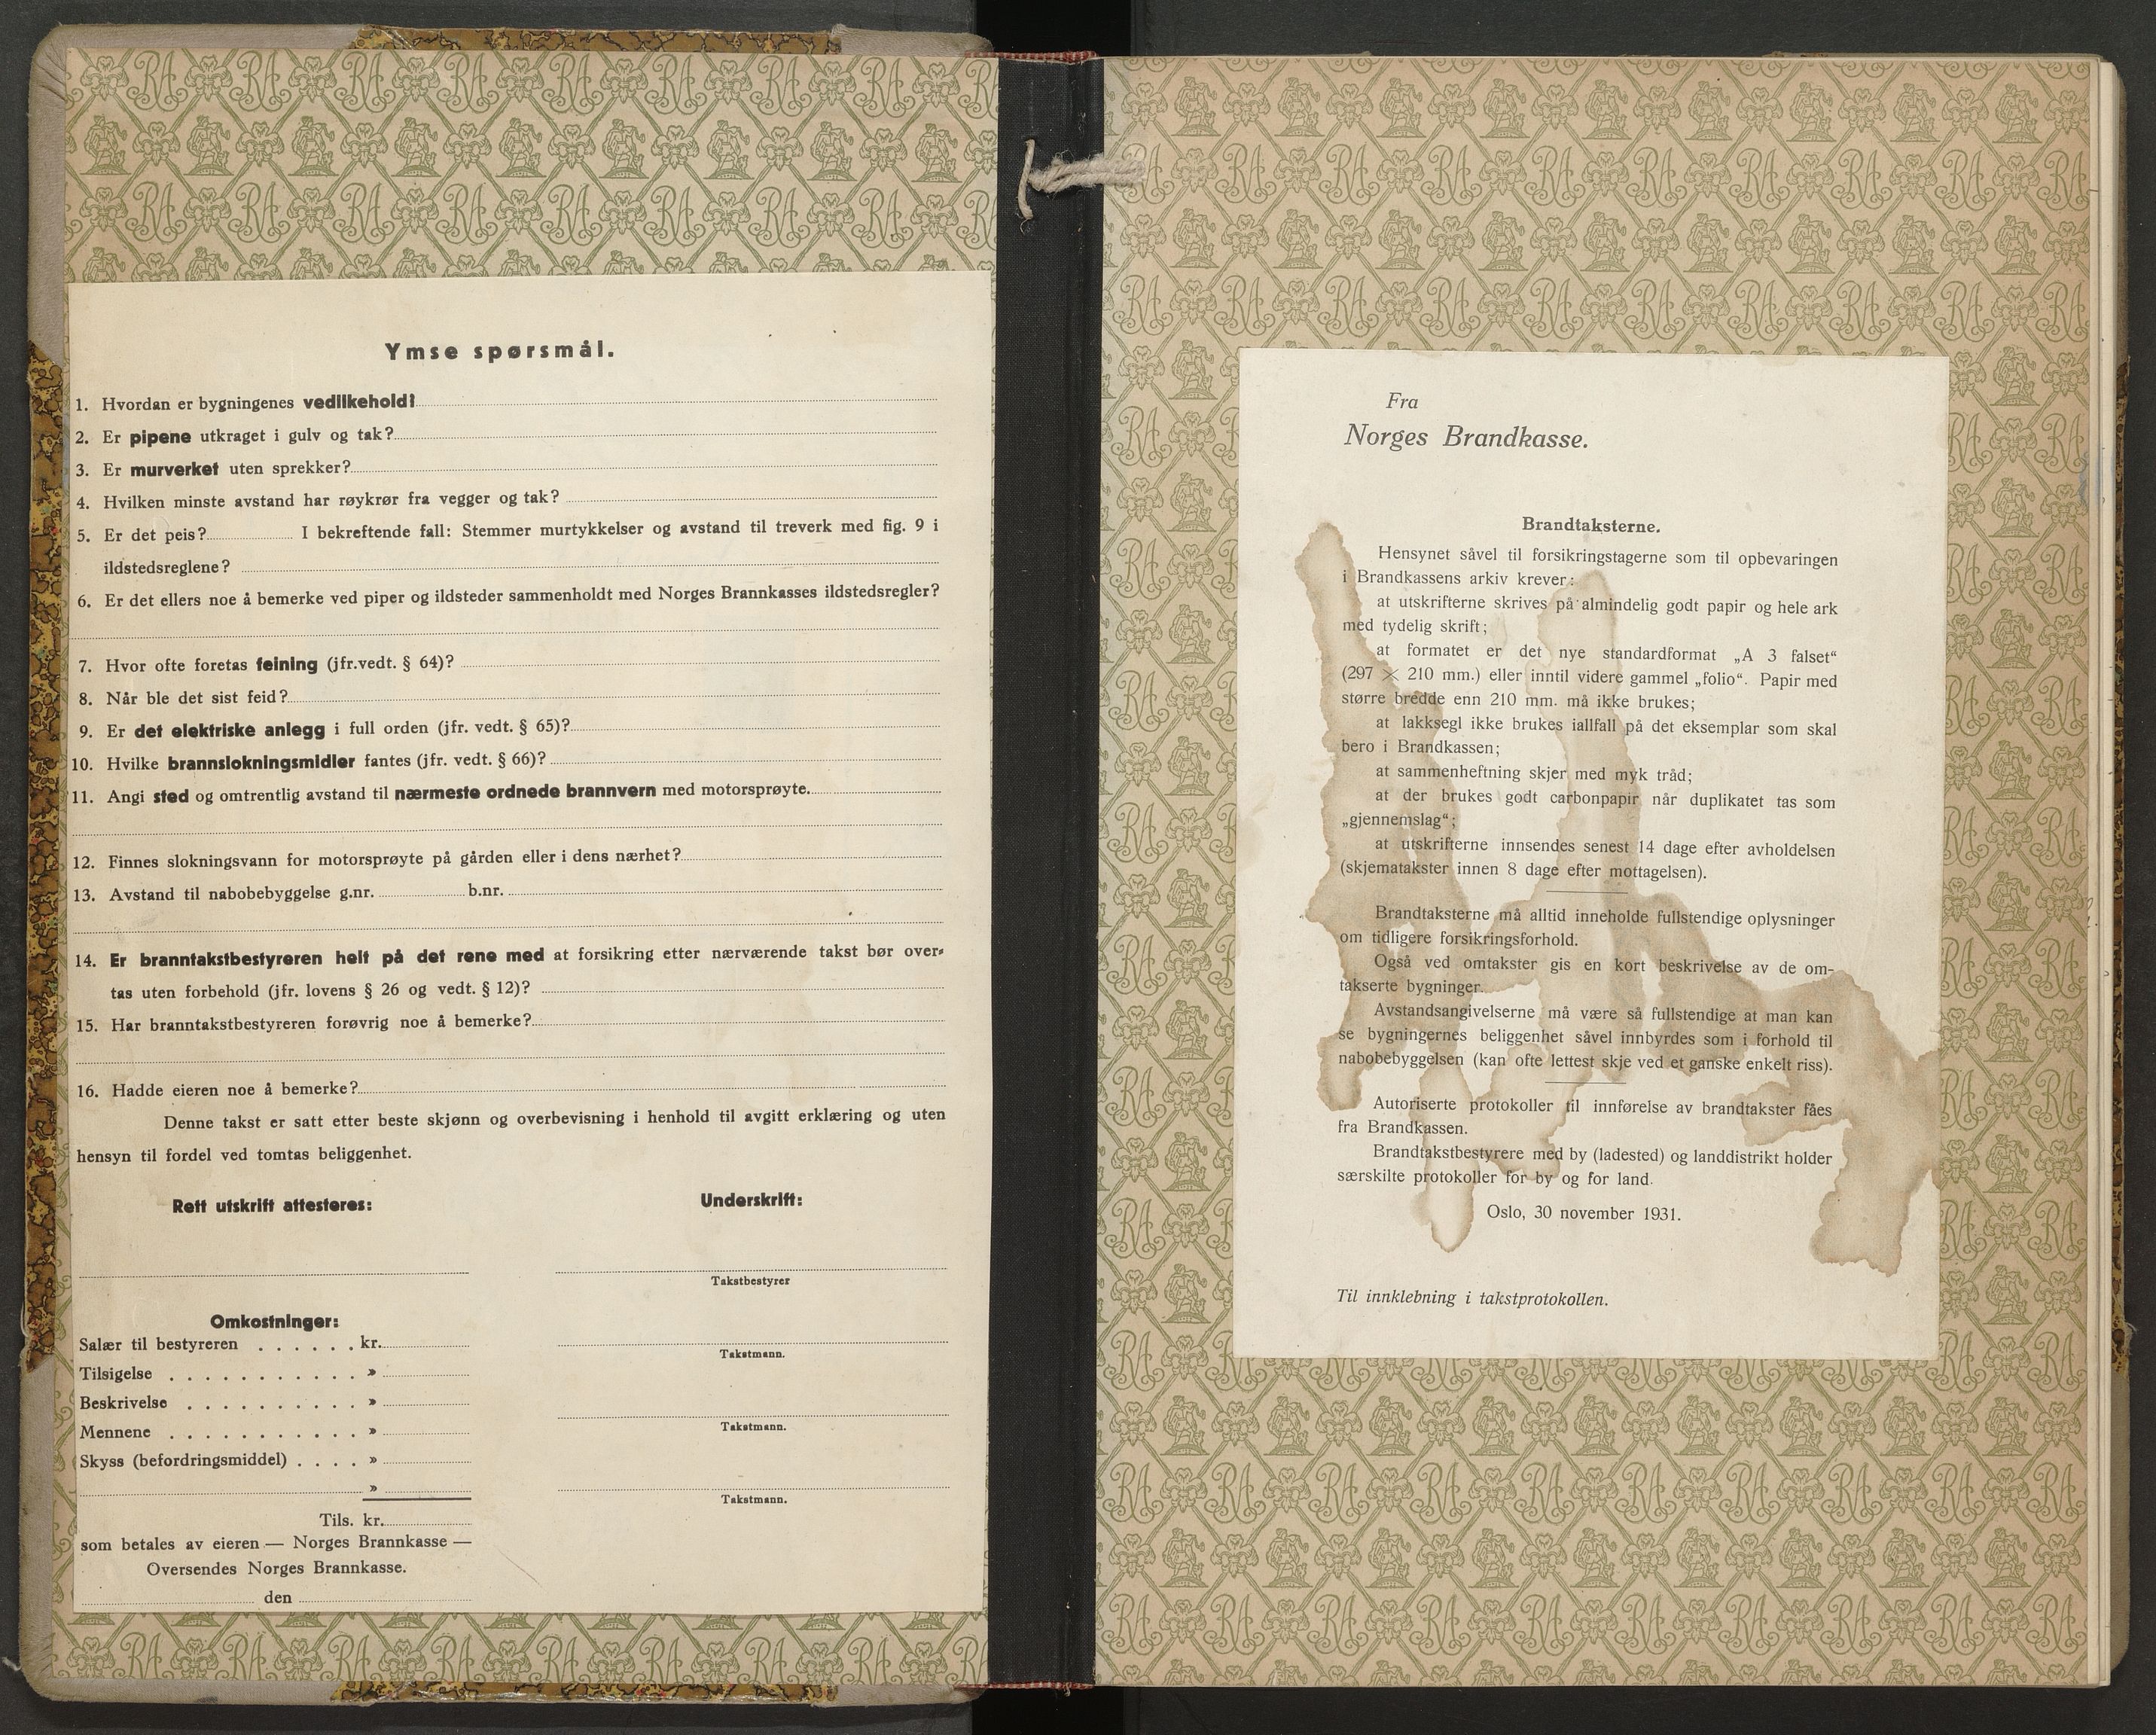 Ymse spørsmål.
1. Hvordan er bygningenes vedlikehold?
2. Er pipene utkraget i gulv og tak?
3. Er murverket uten sprekker?
4. Hvilken minste avstand har røykrør fra vegger og tak?
5. Er det peis? I bekreftende fall: Stemmer murtykkelser og avstand til treverk med fig. 9 i
ildstedsreglene?
6. Er det ellers noe å bemerke ved piper og ildsteder sammenholdt med Norges Brannkasses ildstedsregler?
7. Hvor ofte foretas feining (jfr.vedt. § 64)?
8. Når ble det sist feid?
9. Er det elektriske anlegg i full orden (jfr. vedt. § 65)?
10. Hvilke brannslokningsmidler fantes (jfr. vedt. § 66)?
11. Angi sted og omtrentlig avstand til nærmeste ordnede brannvern med motorsprøyte.
12. Finnes slokningsvann for motorsprøyte på gården eller i dens nærhet?
13. Avstand til nabobebyggelse g.nr. b.nr.
14. Er branntakstbestyreren helt på det rene med at forsikring etter nærværende takst bør over-
tas uten forbehold (jfr. lovens § 26 og vedt. § 12)?
15. Har branntakstbestyreren forøvrig noe å bemerke?
16. Hadde eieren noe å bemerke?
Denne takst er satt etter beste skjønn og overbevisning i henhold til avgitt erklæring og uten
hensyn til fordel ved tomtas beliggenhet.
Rett utskrift attesteres:
Underskrift:
Takstbestyrer
Omkostninger:
Salær til bestyreren . . . . . . kr.
Takstmann.
Tilsigelse . . . . . . . . . . . »
Beskrivelse . . . . . . . . . . »
Takstmann.
Mennene . . . . . . . . . . . »
Skyss (befordringsmiddel) . . . . »
»
Takstmann.
Tils. kr.
som betales av eieren — Norges Brannkasse —
Oversendes Norges Brannkasse.
den
Fra
Norges Brandkasse.
Brandtaksterne.
Hensynet såvel til forsikringstagerne som til opbevaringen
i Brandkassens arkiv krever:
at utskrifterne skrives på almindelig godt papir og hele ark
med tydelig skrift;
at formatet er det nye standardformat „A 3 falset“
(297 × 210 mm.) eller inntil videre gammel „folio“. Papir med
større bredde enn 210 mm. må ikke brukes;
at lakksegl ikke brukes iallfall på det eksemplar som skal
bero i Brandkassen;
at sammenheftning skjer med myk tråd;
at der brukes godt carbonpapir når duplikatet tas som
„gjennemslag“;
at utskrifterne innsendes senest 14 dage efter avholdelsen
(skjematakster innen 8 dage efter mottagelsen).
Brandtaksterne må alltid inneholde fullstendige oplysninger
om tidligere forsikringsforhold.
Også ved omtakster gis en kort beskrivelse av de om-
takserte bygninger.
Avstandsangivelserne må være så fullstendige at man kan
se bygningernes beliggenhet såvel innbyrdes som i forhold til
nabobebyggelsen (kan ofte lettest skje ved et ganske enkelt riss).
Autoriserte protokoller til innførelse av brandtakster fåes
fra Brandkassen.
Brandtakstbestyrere med by (ladested) og landdistrikt holder
særskilte protokoller for by og for land.
Oslo, 30 november 1931.
Til innklebning i takstprotokollen.